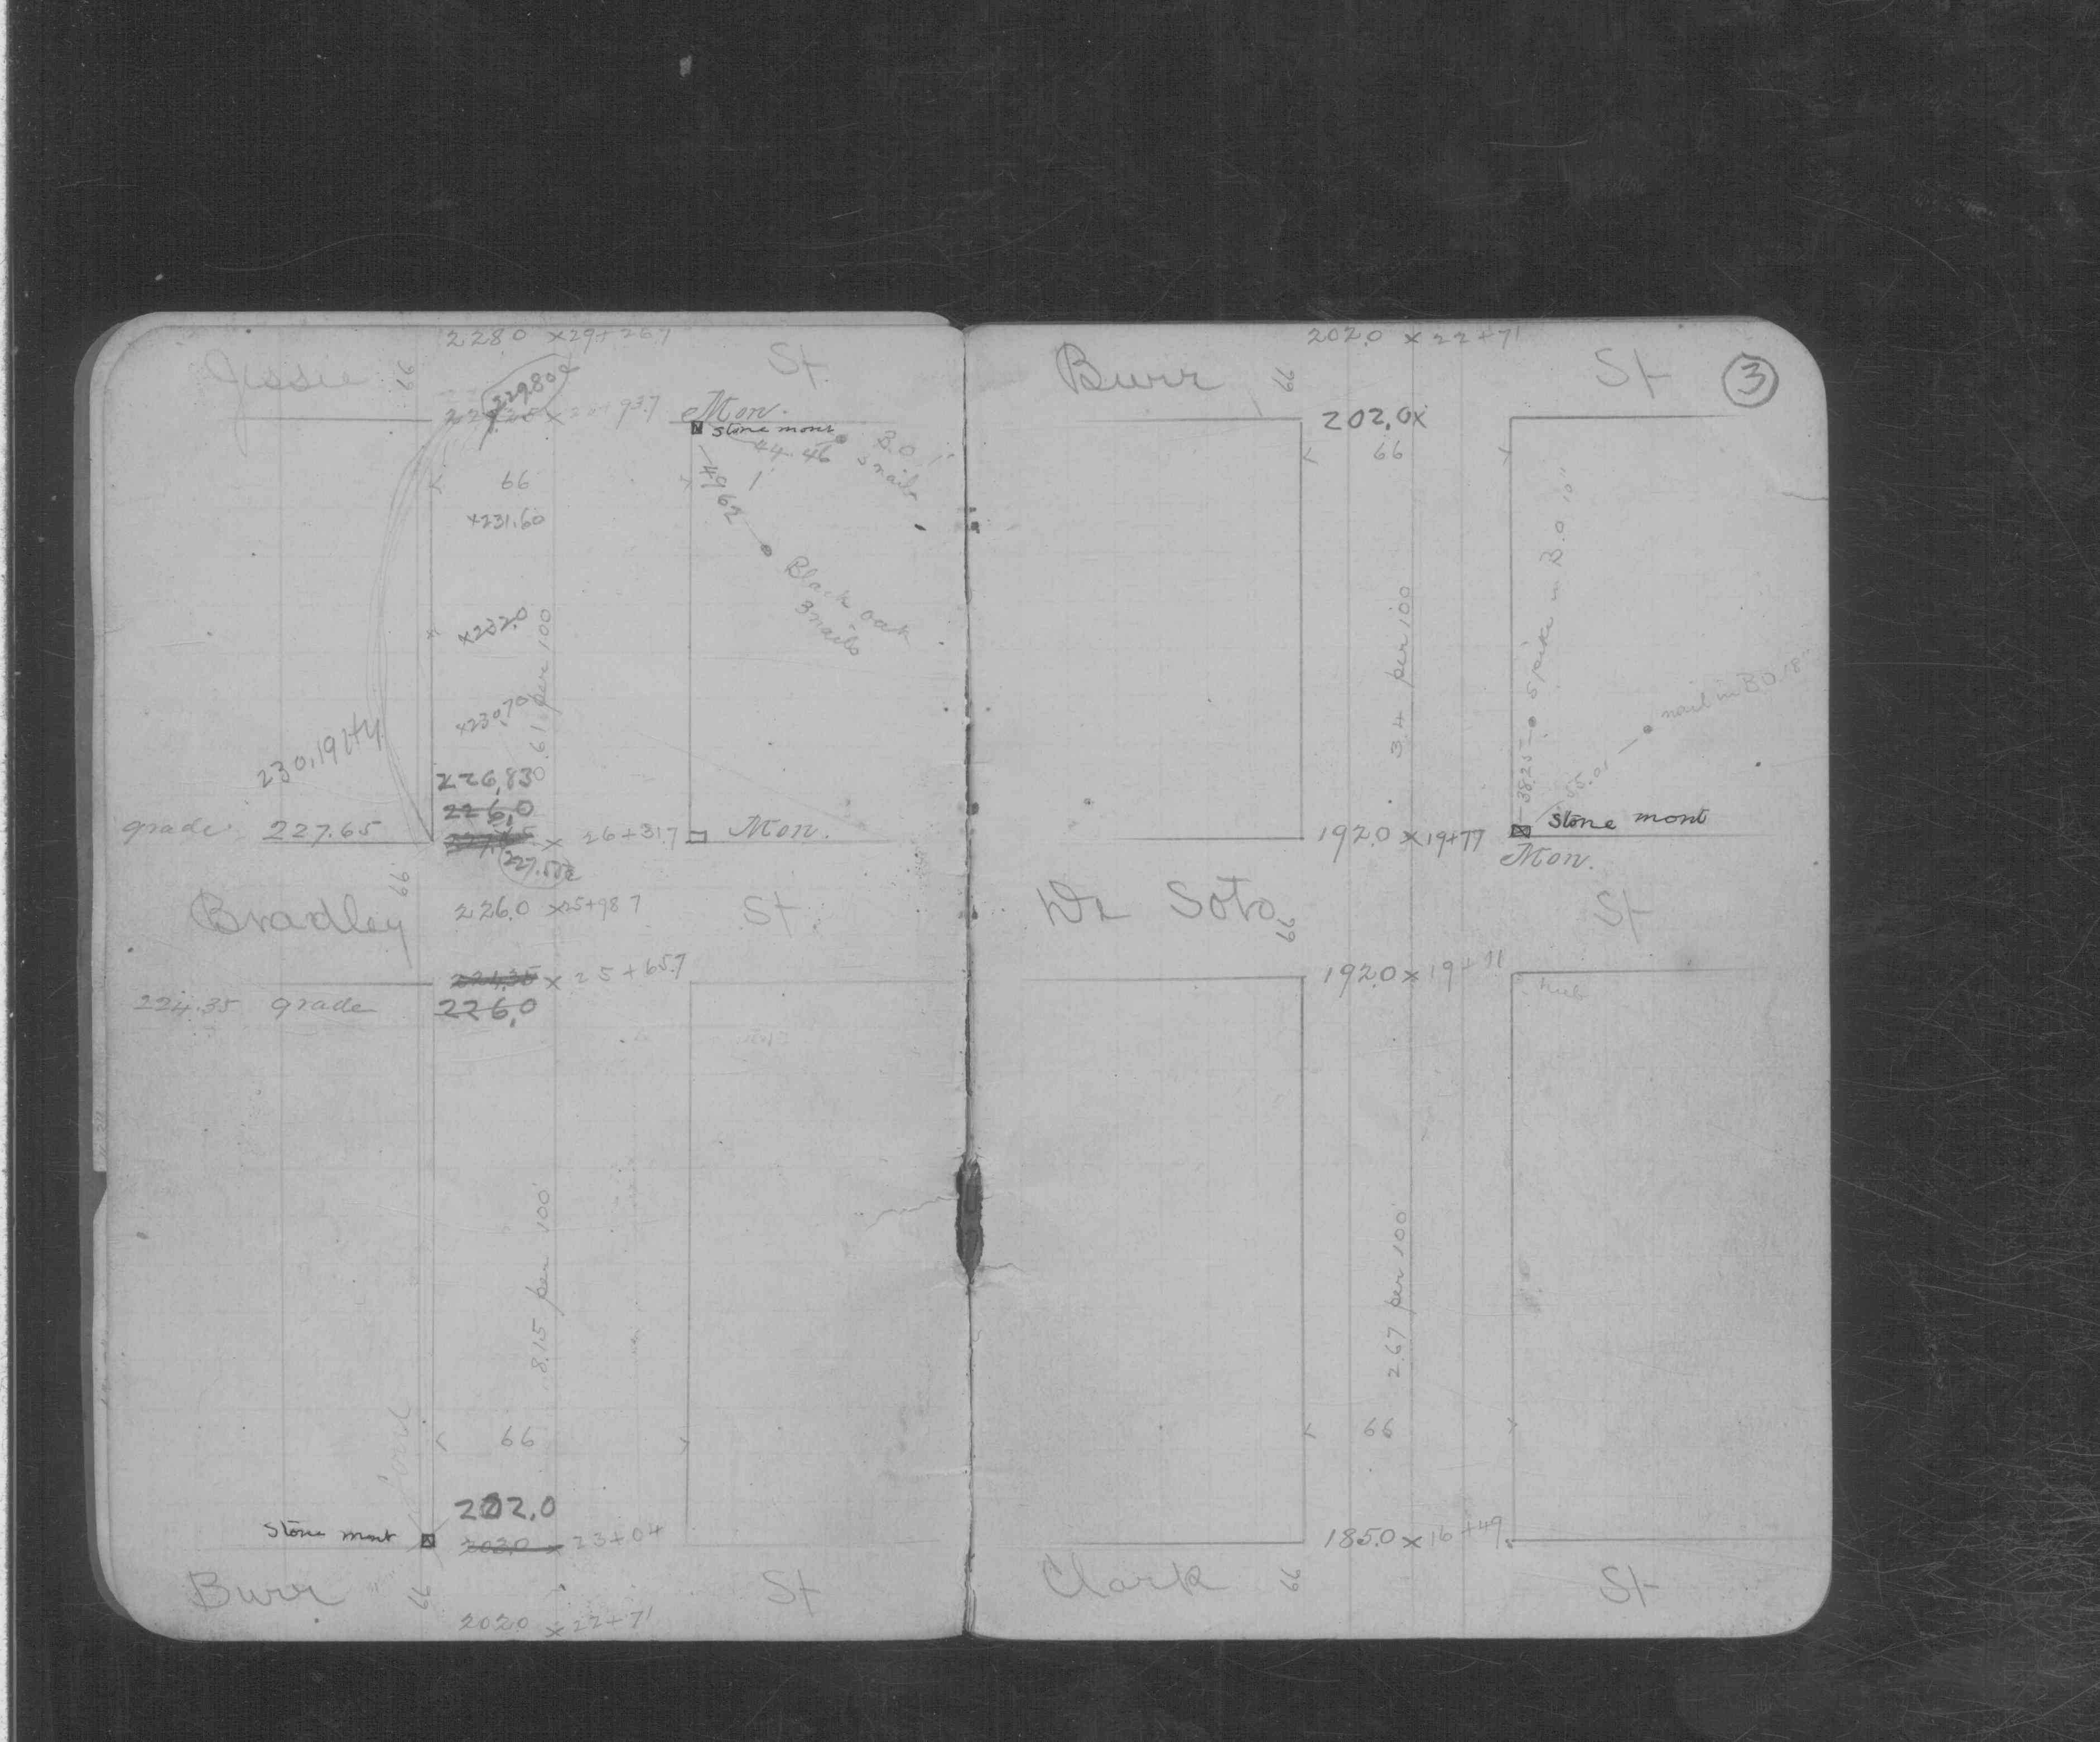 2280 x29+267
Jessie 66 St.
229.80
Mon.
Stone mont
44.46
B.O. 1'
3 nails
66
x231.60
Black oak
3 nails
x232.0
.61 per 100
x230.70
230.19 Hy
226.83
226.0
grade 227.65
x 26+317 Mon.
227.50
Bradley 66 St.
226.0 x25+987
x 25+65.7
224.35 grade 226.0
8.15 per 100'
66
202.0
Stone mont
2020 x 23+04
Burr 66 St
2020 x 22+71
2020 x 22+71
Burr 66 St 3
202.0x
66
3.4 per 100
Spike in B.O 10"
nail in B.O. 18"
38.25
1920 x 19+77 Stone mont
Mon.
De Soto 66 St
1920 x 19+11
hub
2.67 per 100'
66
1850 x 16+49
Clark 66 St